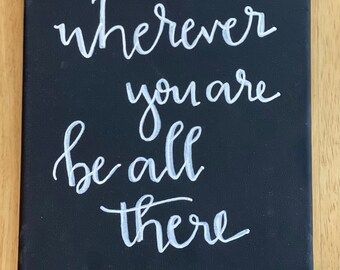 wherever
you are
be all
there